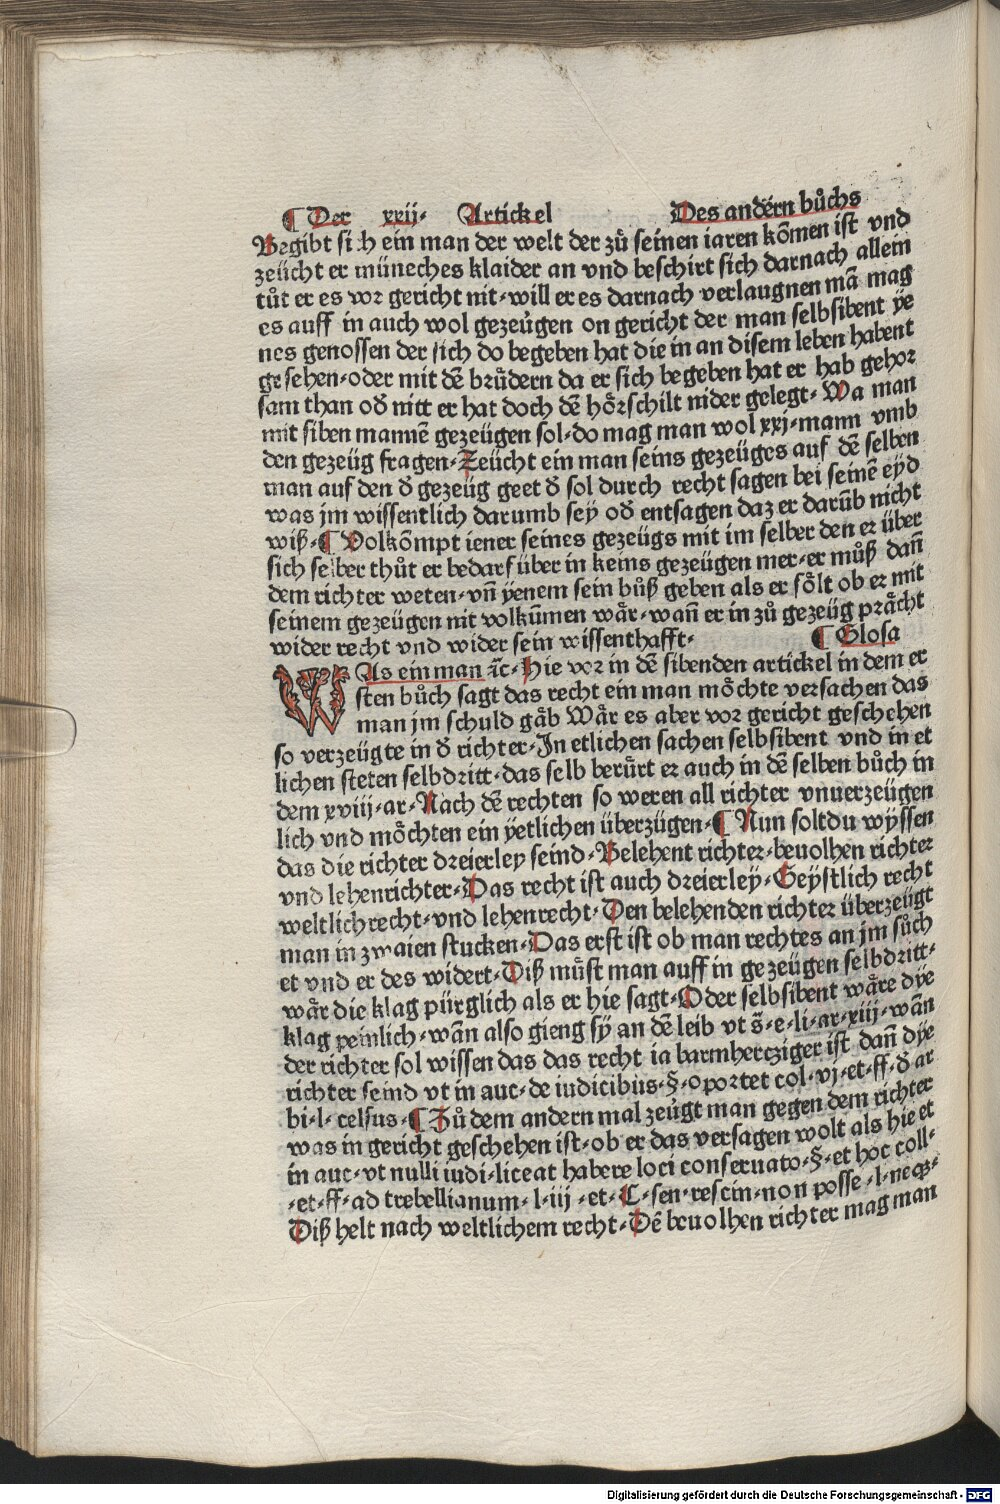 ¶ Der xxij· Artickel Des andern bůchs
Begibt sich ein man der welt der zů seinen iaren kōmen ist vnd
zeücht er müneches klaider an vnd beschirt sich darnach allein
tůt er es vor gericht nit·will er es darnach verlaugnen mā mag
es auff in auch wol gezeügen on gericht der man selbsibent ÿe
nes genossen der sich do begeben hat die in an disem leben habent
gesehen·oder mit dē brüdern da er sich begeben hat er hab gehor
sam than oď nitt er hat doch dē hörschilt nider gelegt·Wa man
mit siben mannē gezeügen sol·do mag man wol xxj·mann vmb
den gezeüg fragen·Zeücht ein man seins gezeüges auf dē selben
man auf den ď gezeüg geet ď sol durch recht sagen bei seinē eÿd
was jm wissentlich darumb seÿ oď entsagen daz er darūb nicht
wiß·¶ Volkōmpt iener seines gezeügs mit im selber den er über
sich selber thůt er bedarf über in keins gezeügen mer·er můß dañ
dem richter weten·vñ ÿenem sein bůß geben als er sölt ob er mit
seinem gezeügen nit volkūmen wär·wañ er in zů gezeüg prächt
wider recht vnd wider sein wissenthafft· ¶ Glosa
WAs ein man ⁊c·Hie vor in dē sibenden artickel in dem er
sten bůch sagt das recht ein man möchte versachen das
man jm schuld gäb Wär es aber vor gericht geschehen
so verzeügte in ď richter·In etlichen sachen selbsibent vnd in et
lichen steten selbdritt·das selb berürt er auch in dē selben bůch in
dem xviij·ar·Nach dē rechten so weren all richter vnuerzeügen
lich vnd möchten ein ÿetlichen überzügen·¶ Nun soltdu wÿssen
das die richter dreierley seind·Belehent richter·beuolhen richter
vnd lehenrichter·Das recht ist auch dreierley·Geÿstlich recht
weltlich recht·vnd lehenrecht·Den belehenden richter überzeügt
man in zwaien stucken·Das erst ist ob man rechtes an jm sůch
et vnd er des widert·Diß müst man auff in gezeügen selbdritt·
wär die klag pürglich als er hie sagt·Oder selbsibent wäre dÿe
klag peinlich·wān also gieng sÿ an dē leib vt s̄·e·li·ar·xiij·wān
der richter sol wissen das das recht ia barmhercziger ist dañ dÿe
richter seind vt in auc·de iudicibus·§·oportet col·vj·et·ff·ď ar
bi·l·celsus·¶ Zů dem andern mal zeügt man gegen dem richter
was in gericht geschehen ist·ob er das versagen wolt als hie et
in auc·vt nulli iudi·liceat habere loci conseruato·§·et hoc coll·
·et·ff·ad trebellianum·l·iij·et·C·sen·rescin·non posse·l·neqȝ·
Diß helt nach weltlichem recht·Dē beuolhen richter mag man
Digitalisierung gefördert durch die Deutsche Forschungsgemeinschaft - DFG